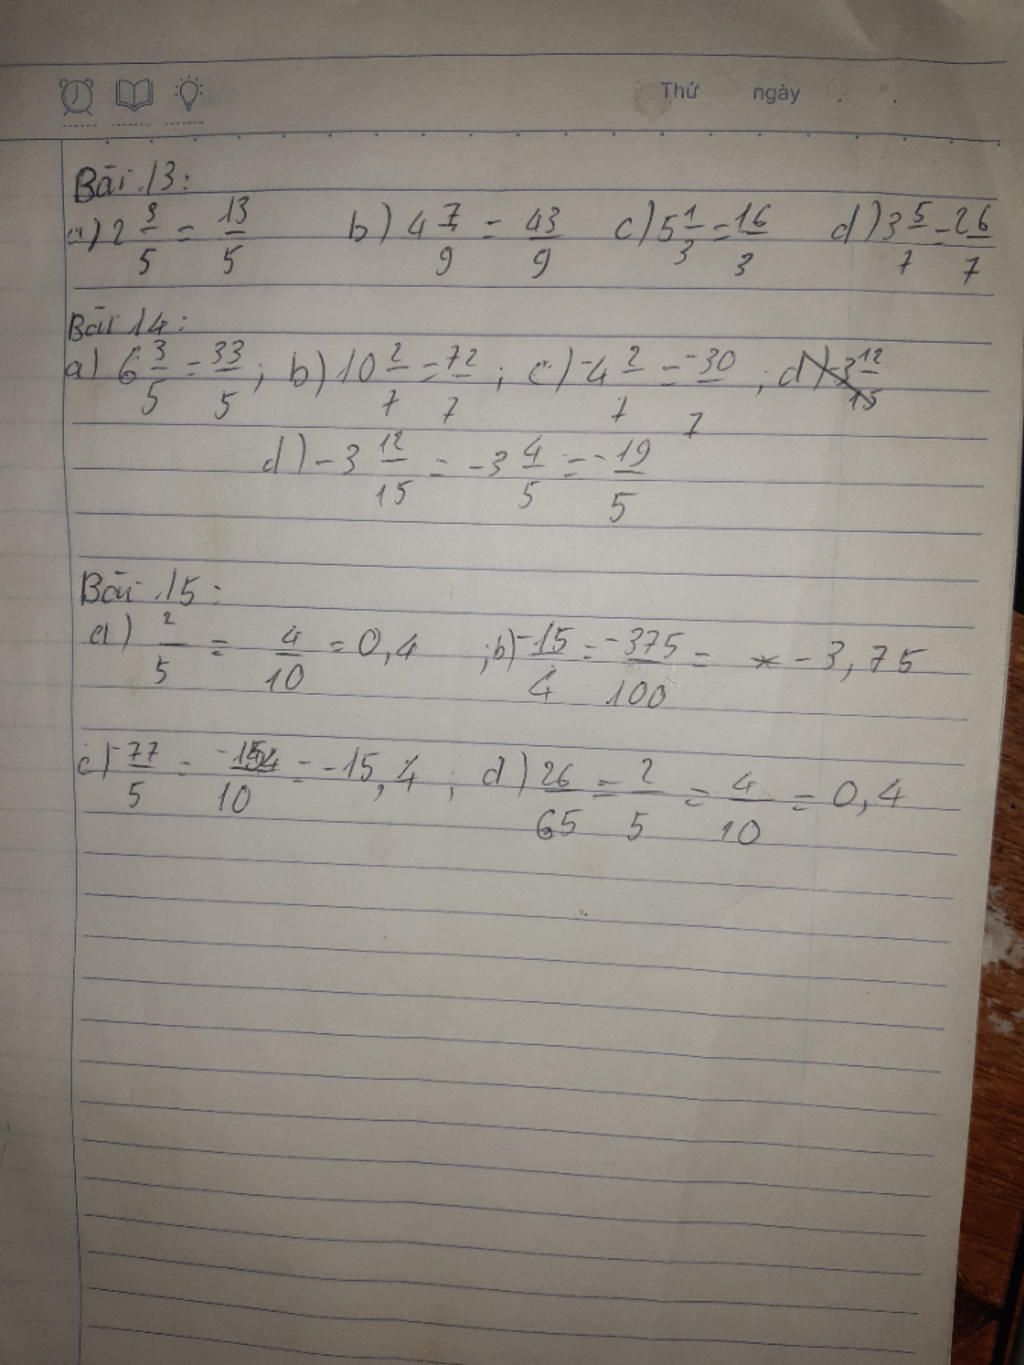 Thứ ngày
Bài 13:
a) 2 3/5 = 13/5 b) 4 7/9 = 43/9 c) 5 1/3 = 16/3 d) 3 5/7 = 26/7
Bài 14:
a) 6 3/5 = 33/5 ; b) 10 2/7 = 72/7 ; c) -4 2/7 = -30/7 ; d) -3 12/15
d) -3 12/15 = -3 4/5 = -19/5
Bài 15:
a) 2/5 = 4/10 = 0,4 ; b) -15/4 = -375/100 = -3,75
c) -77/5 = -154/10 = -15,4 ; d) 26/65 = 2/5 = 4/10 = 0,4